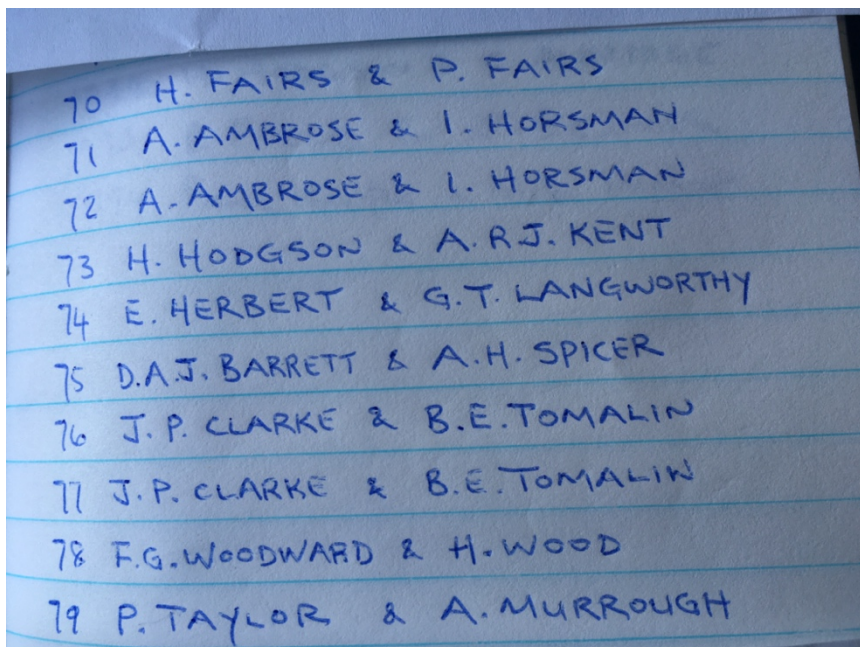 70 H. FAIRS & P. FAIRS
71 A. AMBROSE & I. HORSMAN
72 A. AMBROSE & I. HORSMAN
73 H. HODGSON & A.R.J. KENT
74 E. HERBERT & G.T. LANGWORTHY
75 D.A.J. BARRETT & A.H. SPICER
76 J.P. CLARKE & B.E. TOMALIN
77 J.P. CLARKE & B.E. TOMALIN
78 F.G. WOODWARD & H. WOOD
79 P. TAYLOR & A. MURROUGH